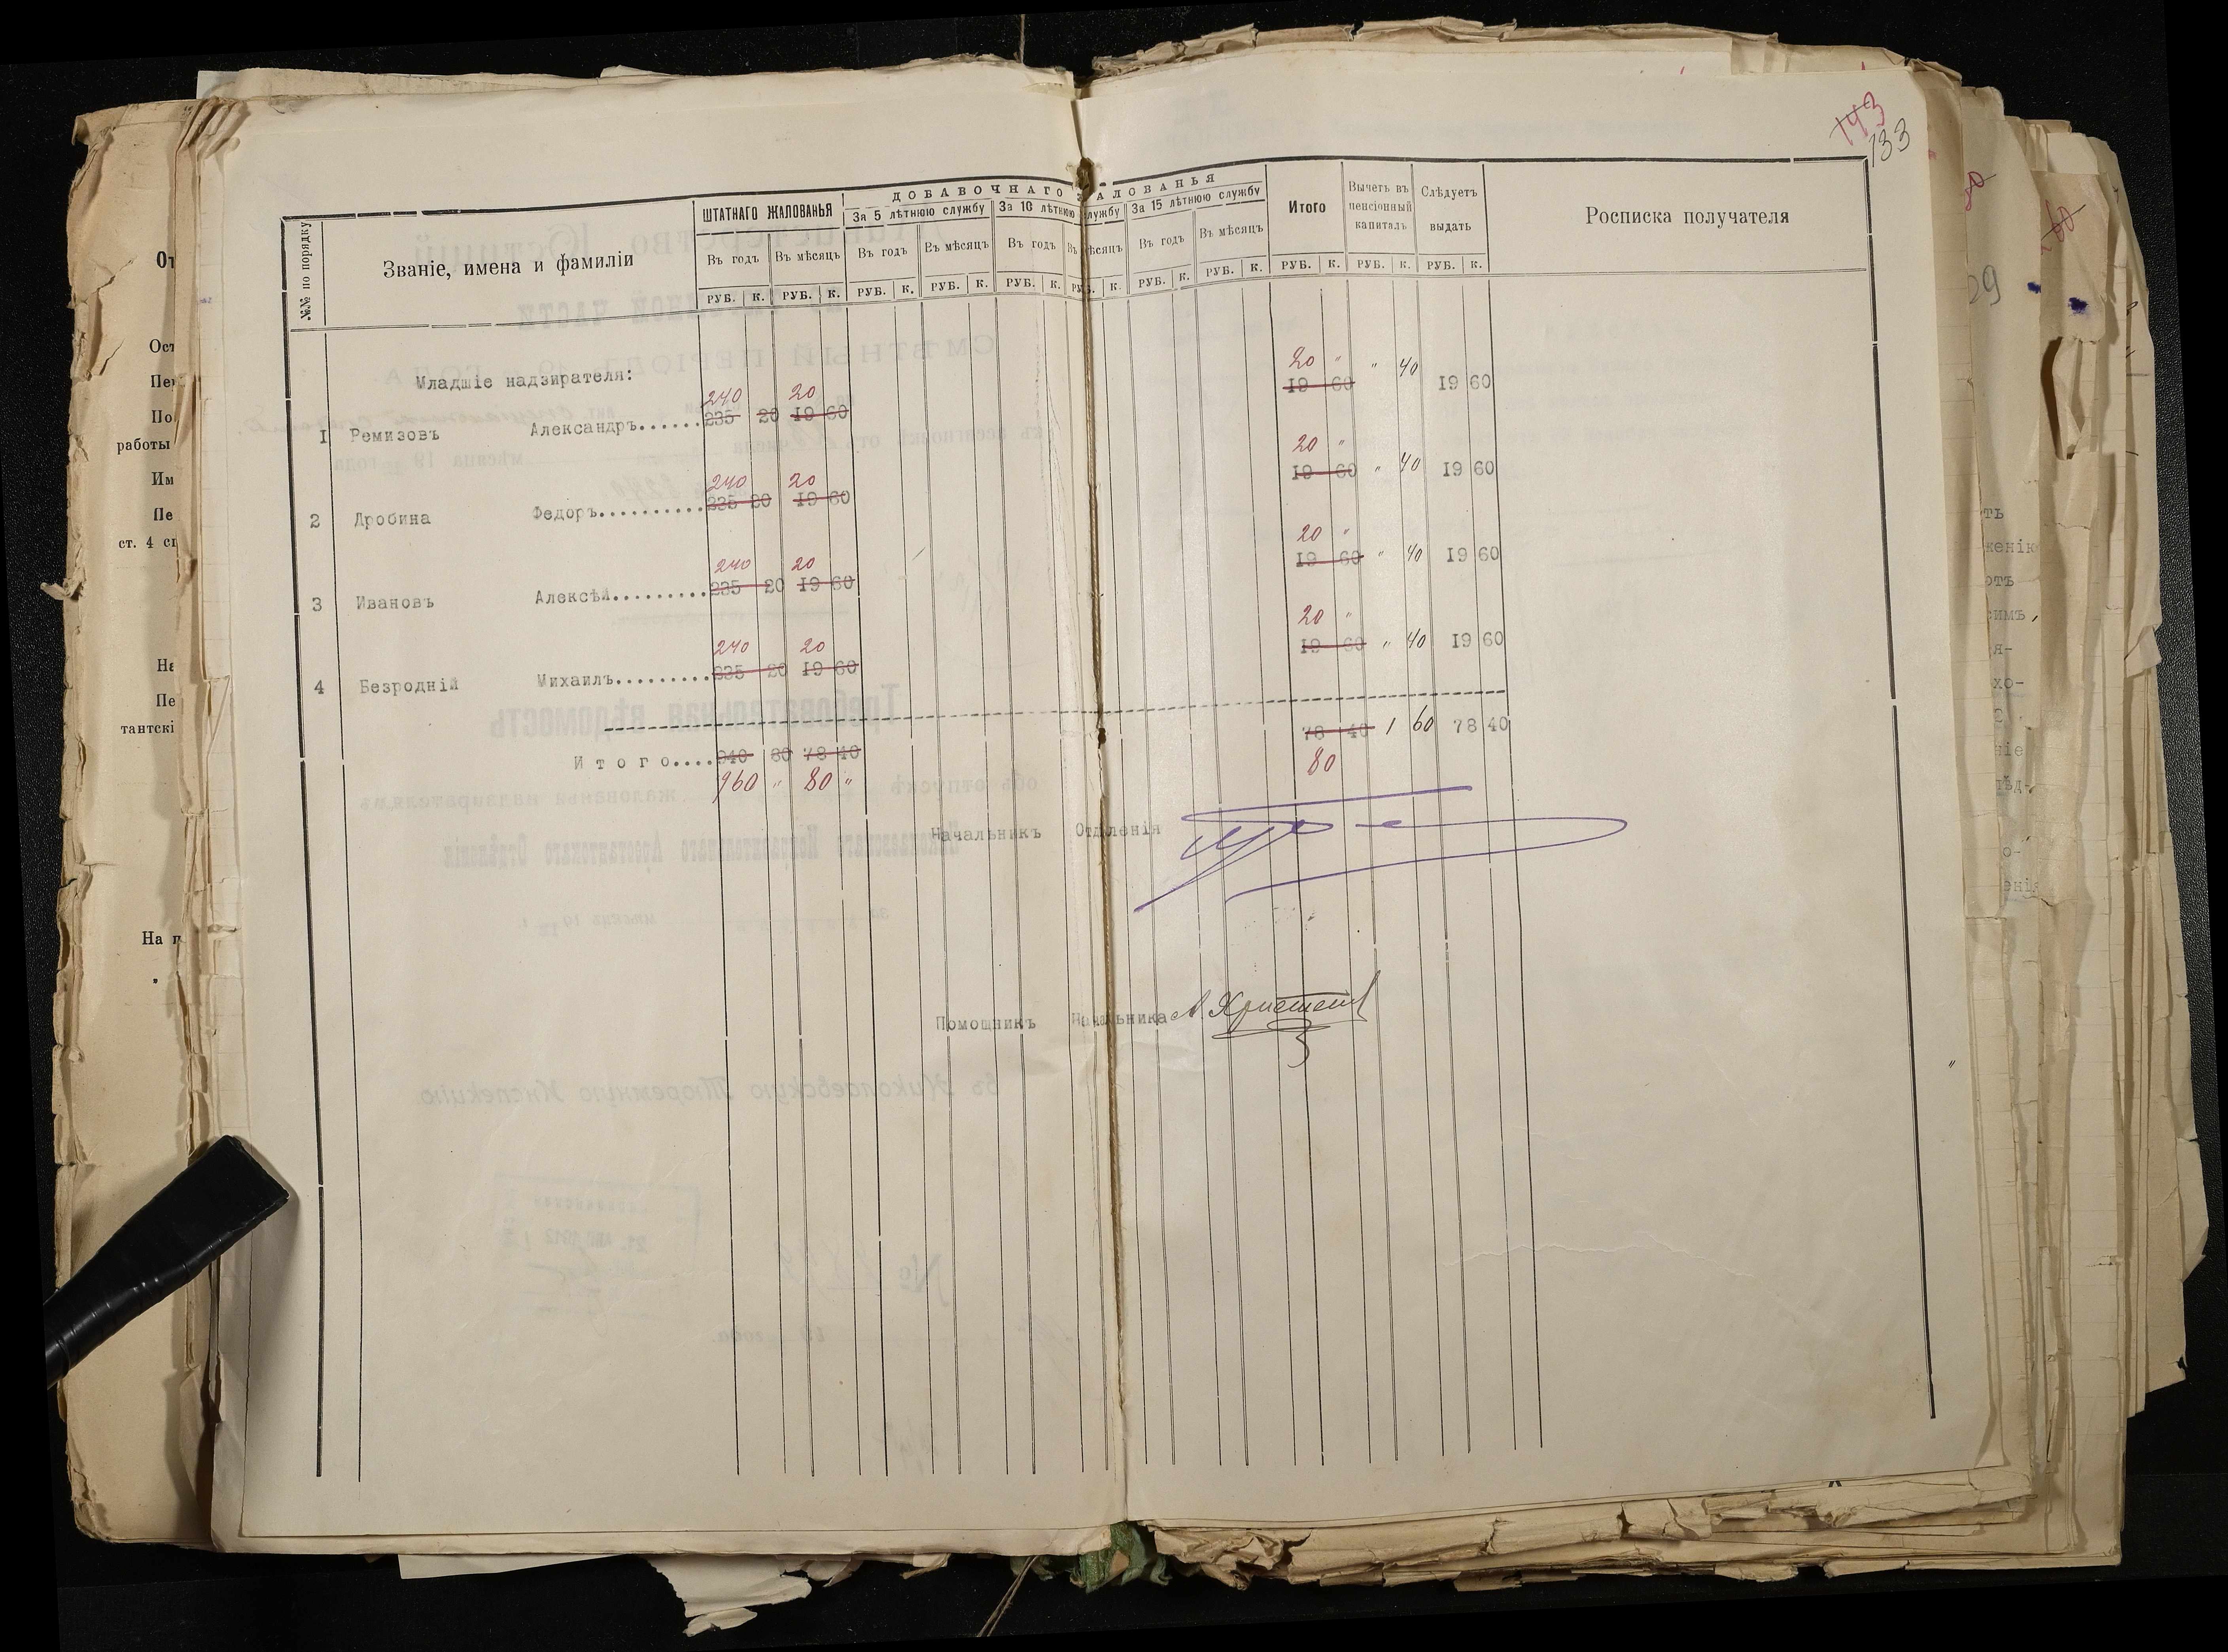 143
133
№№ по порядку
Званіе, имена и фамиліи
ШТАТНАГО ЖАЛОВАНЬЯ
ДОБАВОЧНАГО ЖАЛОВАНЬЯ
За 5 лѣтнюю службу
За 10 лѣтнюю службу
За 15 лѣтнюю службу
Итого
Вычетъ въ пенсіонный капиталъ
Слѣдуетъ выдать
Росписка получателя
Въ годъ Въ мѣсяцъ Въ годъ Въ мѣсяцъ Въ годъ Въ мѣсяцъ Въ годъ Въ мѣсяцъ
РУБ. К. РУБ. К. РУБ. К. РУБ. К. РУБ. К. РУБ. К. РУБ. К. РУБ. К. РУБ. К. РУБ. К. РУБ. К.
Младшіе надзирателя:
240 20 20 "
1 Ремизовъ Александръ...... 235 20 19 60 19 60 " 40 19 60
240 20 20 "
2 Дробина Федоръ.......... 235 20 19 60 19 60 " 40 19 60
240 20 20 "
3 Ивановъ Алексѣй......... 235 20 19 60 19 60 " 40 19 60
240 20 20 "
4 Безродній Михаилъ......... 235 20 19 60 19 60 " 40 19 60
Итого.... 940 80 78 40 78 40 1 60 78 40
960 " 80 " 80
Начальникъ Отдѣленія
Помощникъ Начальника